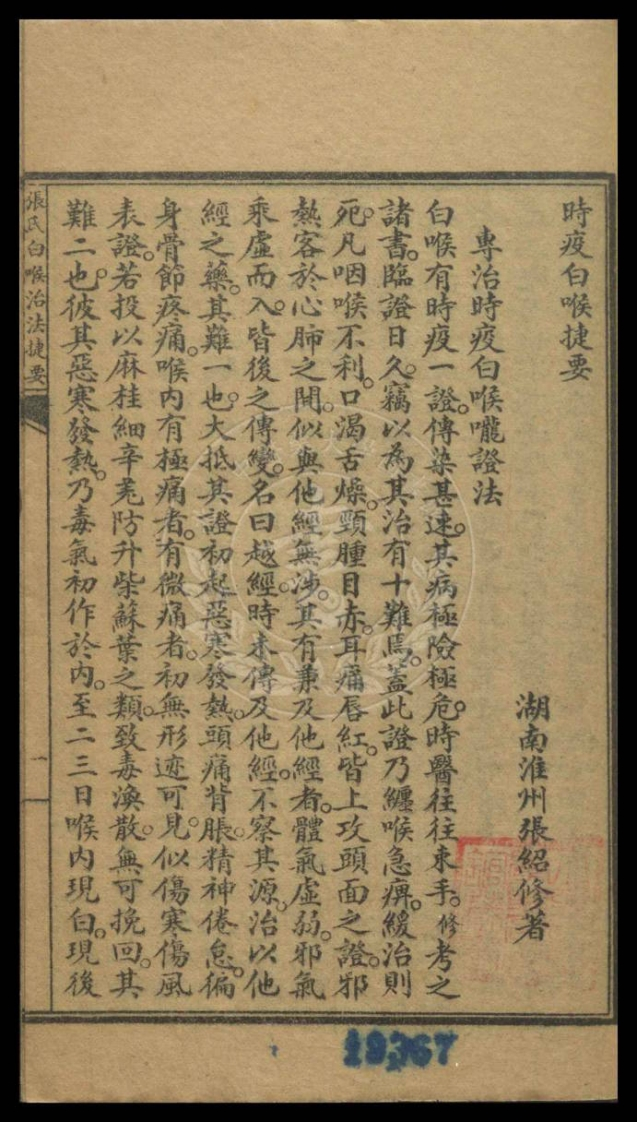 時疫白喉捷要
湖南淮州張紹修著
專治時疫白喉嚨證法
白喉有時疫一證。傳染甚速。其病極險極危。時醫往往束手。修考之
諸書。臨證日久。竊以為其治有十難焉。蓋此證乃纏喉急痹。緩治則
死。凡咽喉不利。口渴舌燥。頸腫目赤。耳痛唇紅。皆上攻頭面之證。邪
熱客於心肺之間。似與他經無涉。其有兼及他經者。體氣虛弱。邪氣
乘虛而入。皆後之傳變。名曰越經。時未傳及他經。不察其源。治以他
經之藥。其難一也。大抵其證初起惡寒發熱。頭痛背脹。精神倦怠。徧
身骨節疼痛。喉內有極痛者。有微痛者。初無形迹可見。似傷寒傷風
表證。若投以麻桂細辛羌防升柴蘇葉之類。致毒渙散。無可挽回。其
難二也。彼其惡寒發熱。乃毒氣初作於內。至二三日喉內現白。現後
張氏白喉治法捷要
一
19367